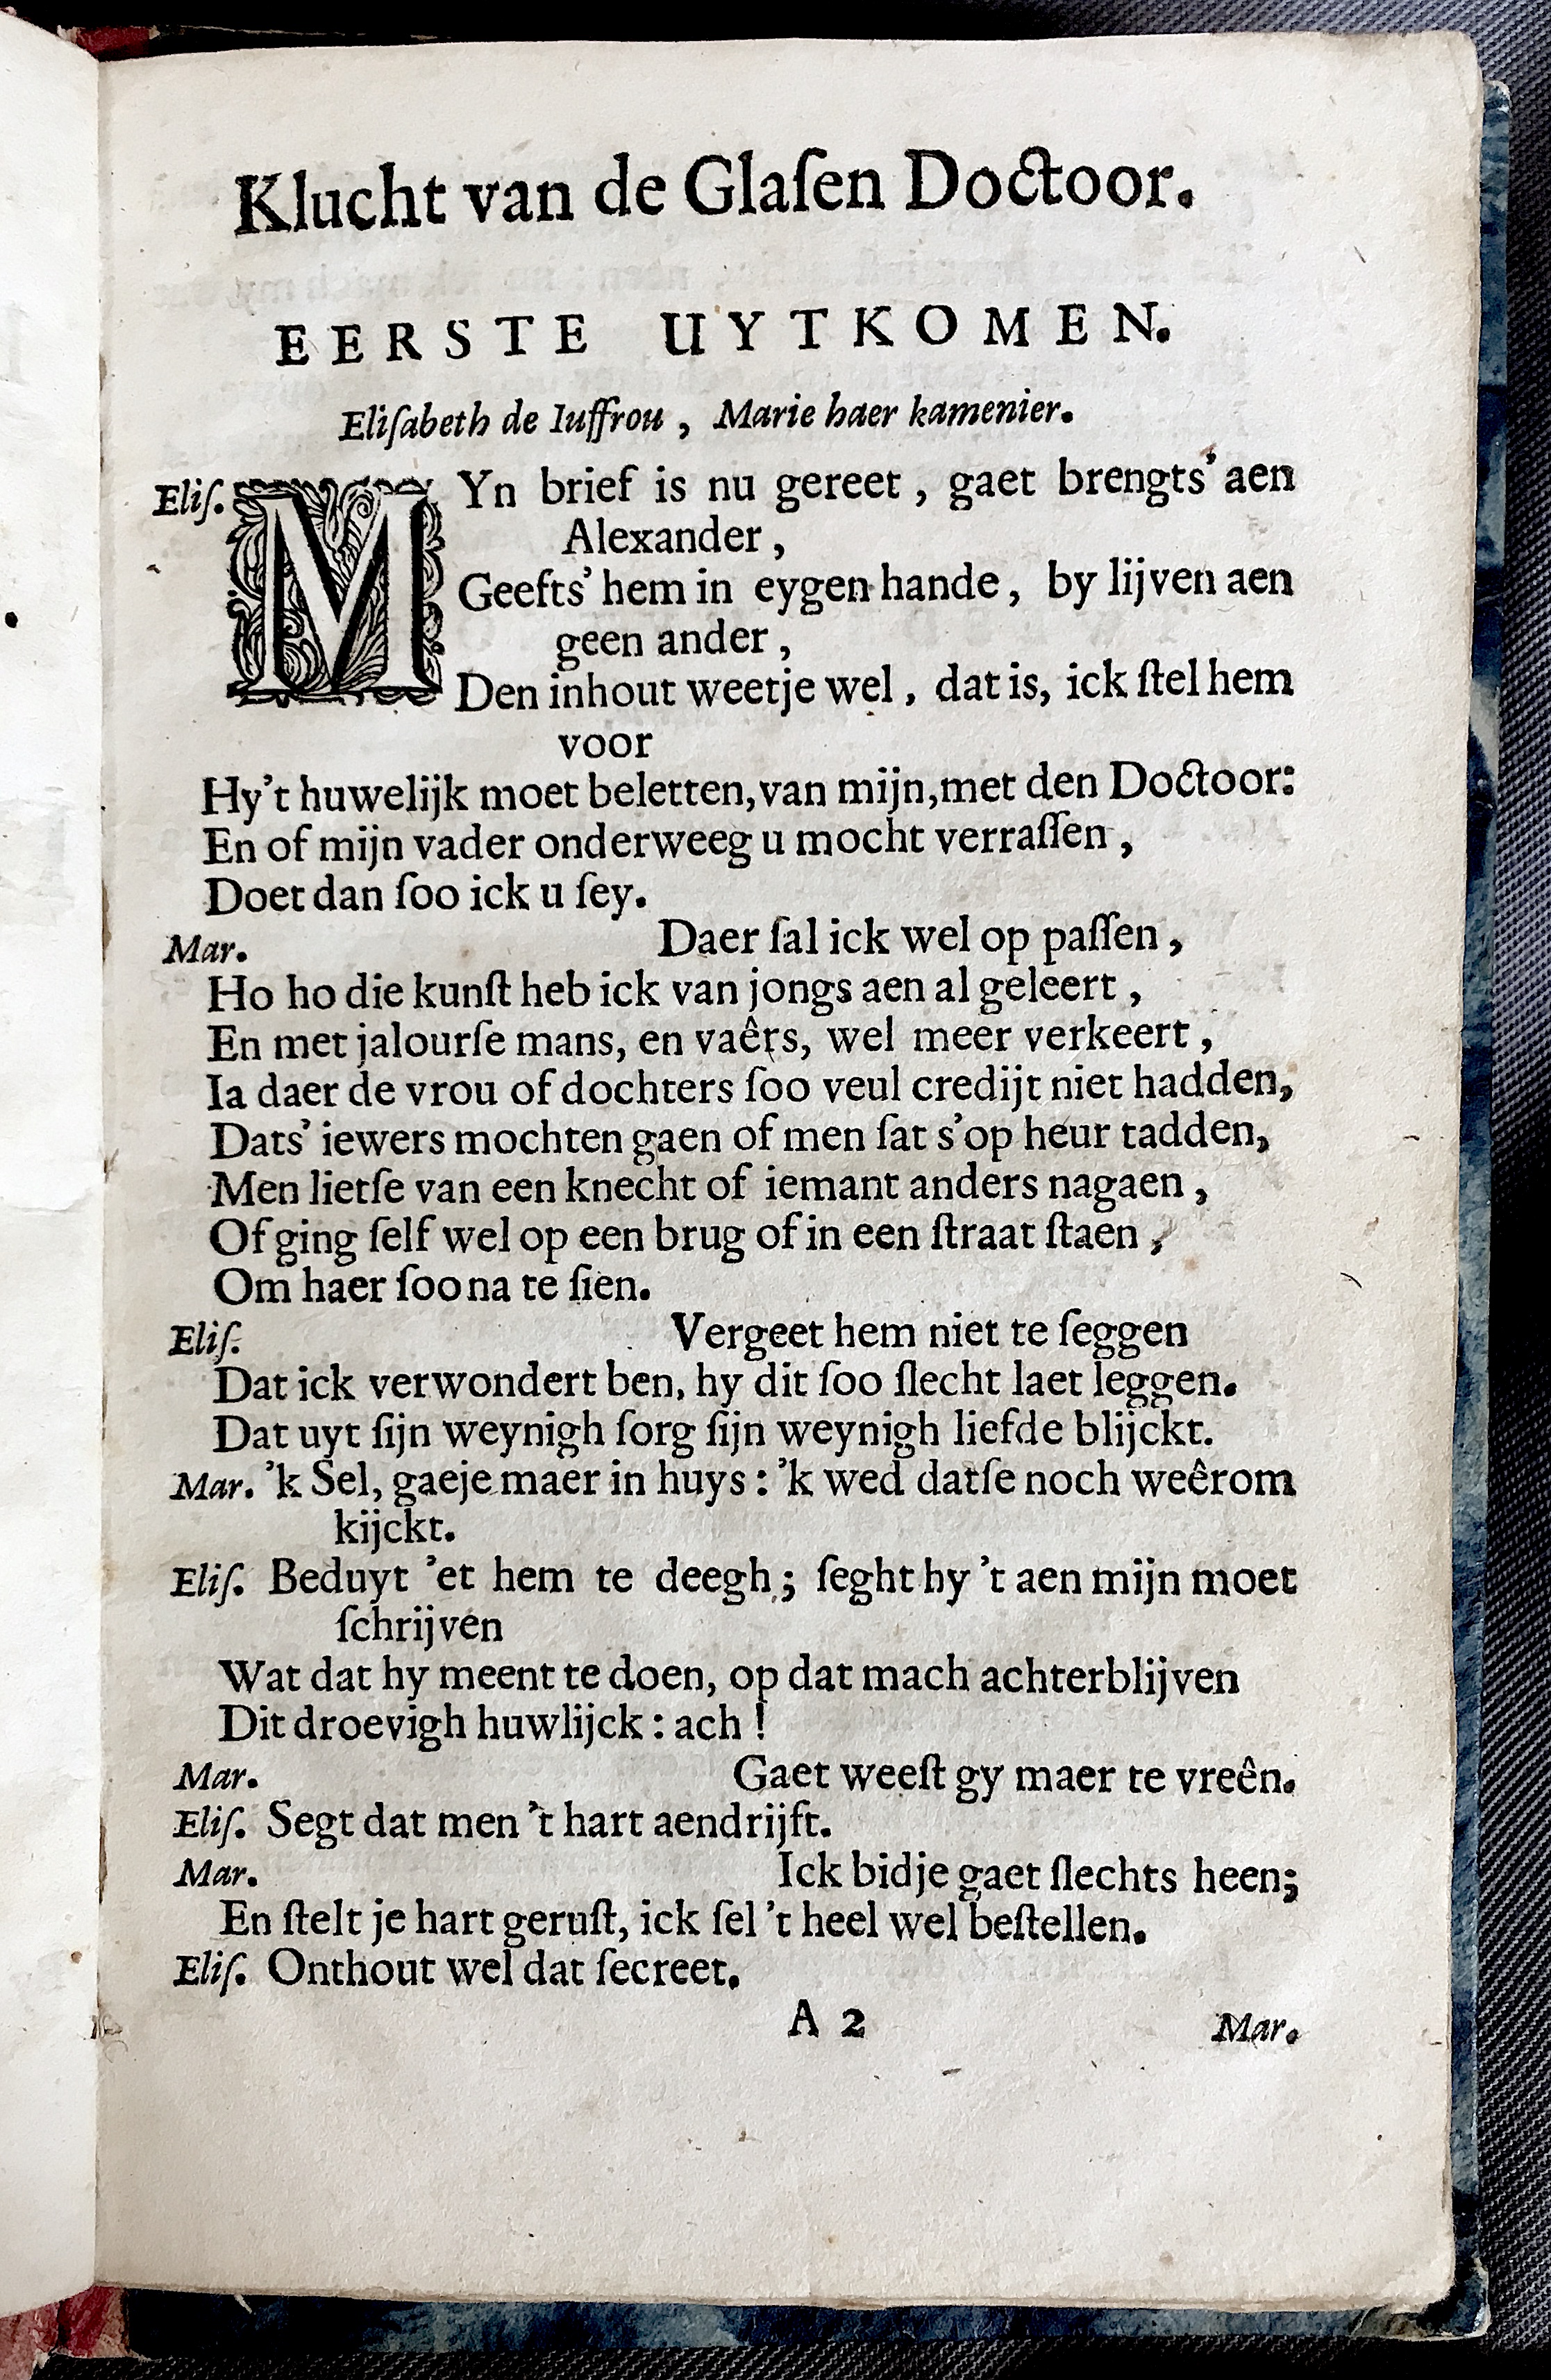 Klucht van de Glaſen Doctoor.
EERSTE UYTKOMEN.
Eliſabeth de Iuffrou, Marie haer kamenier.
Eliſ. MYn brief is nu gereet, gaet brengts' aen
Alexander,
Geefts' hem in eygen hande, by lijven aen
geen ander,
Den inhout weetje wel, dat is, ick ſtel hem
voor
Hy't huwelijk moet beletten, van mijn, met den Doctoor:
En of mijn vader onderweeg u mocht verraſſen,
Doet dan ſoo ick u ſey.
Mar. Daer ſal ick wel op paſſen,
Ho ho die kunſt heb ick van jongs aen al geleert,
En met jalourſe mans, en vaêrs, wel meer verkeert,
Ia daer de vrou of dochters ſoo veul credijt niet hadden,
Dats' iewers mochten gaen of men ſat s'op heur tadden,
Men lietſe van een knecht of iemant anders nagaen,
Of ging ſelf wel op een brug of in een ſtraat ſtaen,
Om haer ſoo na te ſien.
Eliſ. Vergeet hem niet te ſeggen
Dat ick verwondert ben, hy dit ſoo ſlecht laet leggen.
Dat uyt ſijn weynigh ſorg ſijn weynigh liefde blijckt.
Mar. 'k Sel, gaeje maer in huys: 'k wed datſe noch weêrom
kijckt.
Eliſ. Beduyt 'et hem te deegh; ſeght hy 't aen mijn moet
ſchrijven
Wat dat hy meent te doen, op dat mach achterblijven
Dit droevigh huwlijck: ach!
Mar. Gaet weeſt gy maer te vreên.
Eliſ. Segt dat men 't hart aendrijft.
Mar. Ick bidje gaet ſlechts heen;
En ſtelt je hart geruſt, ick ſel 't heel wel beſtellen.
Eliſ. Onthout wel dat ſecreet.
A 2 Mar.